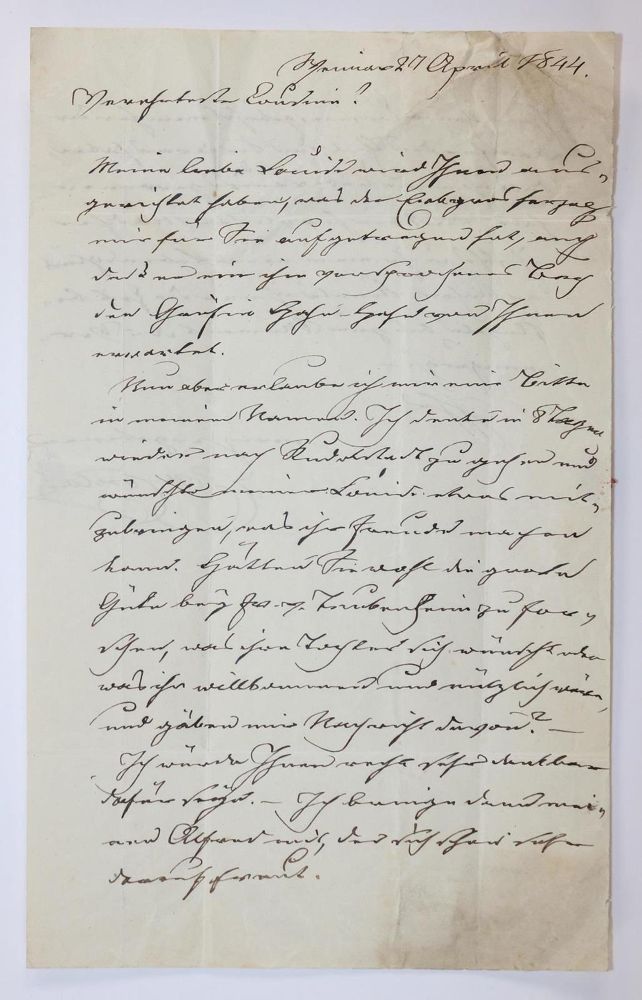 Weimar 27 April 1844.
Verehrteste Cousine!
Meine liebe Louise wird Ihnen aus-
gerichtet haben, was der Erbgrosherzog
mir für Sie aufgetragen hat, auch
daß er ein ihm versprochenes
der Gräfin Hahn-Hahn von Ihnen
erwartet.
Nun aber erlaube ich mir eine Bitte
in meinem Namen. Ich denke in 8 Tagen
wieder nach Rudolstadt zu gehen und
wünschte meiner Louise etwas mit-
zubringen, was ihr Freude machen
kann. Hätten Sie wohl die große
Güte bey Fr. v. Taubenheim zu for-
schen, was ihre Tochter sich wünscht oder
was ihr willkommen und nützlich wäre,
und gäben mir Nachricht davon? —
Ich würde Ihnen recht sehr dankbar
dafür seyn. — Ich bringe dann mei-
nen Alfred mit, der sich schon sehr
darauf freut.